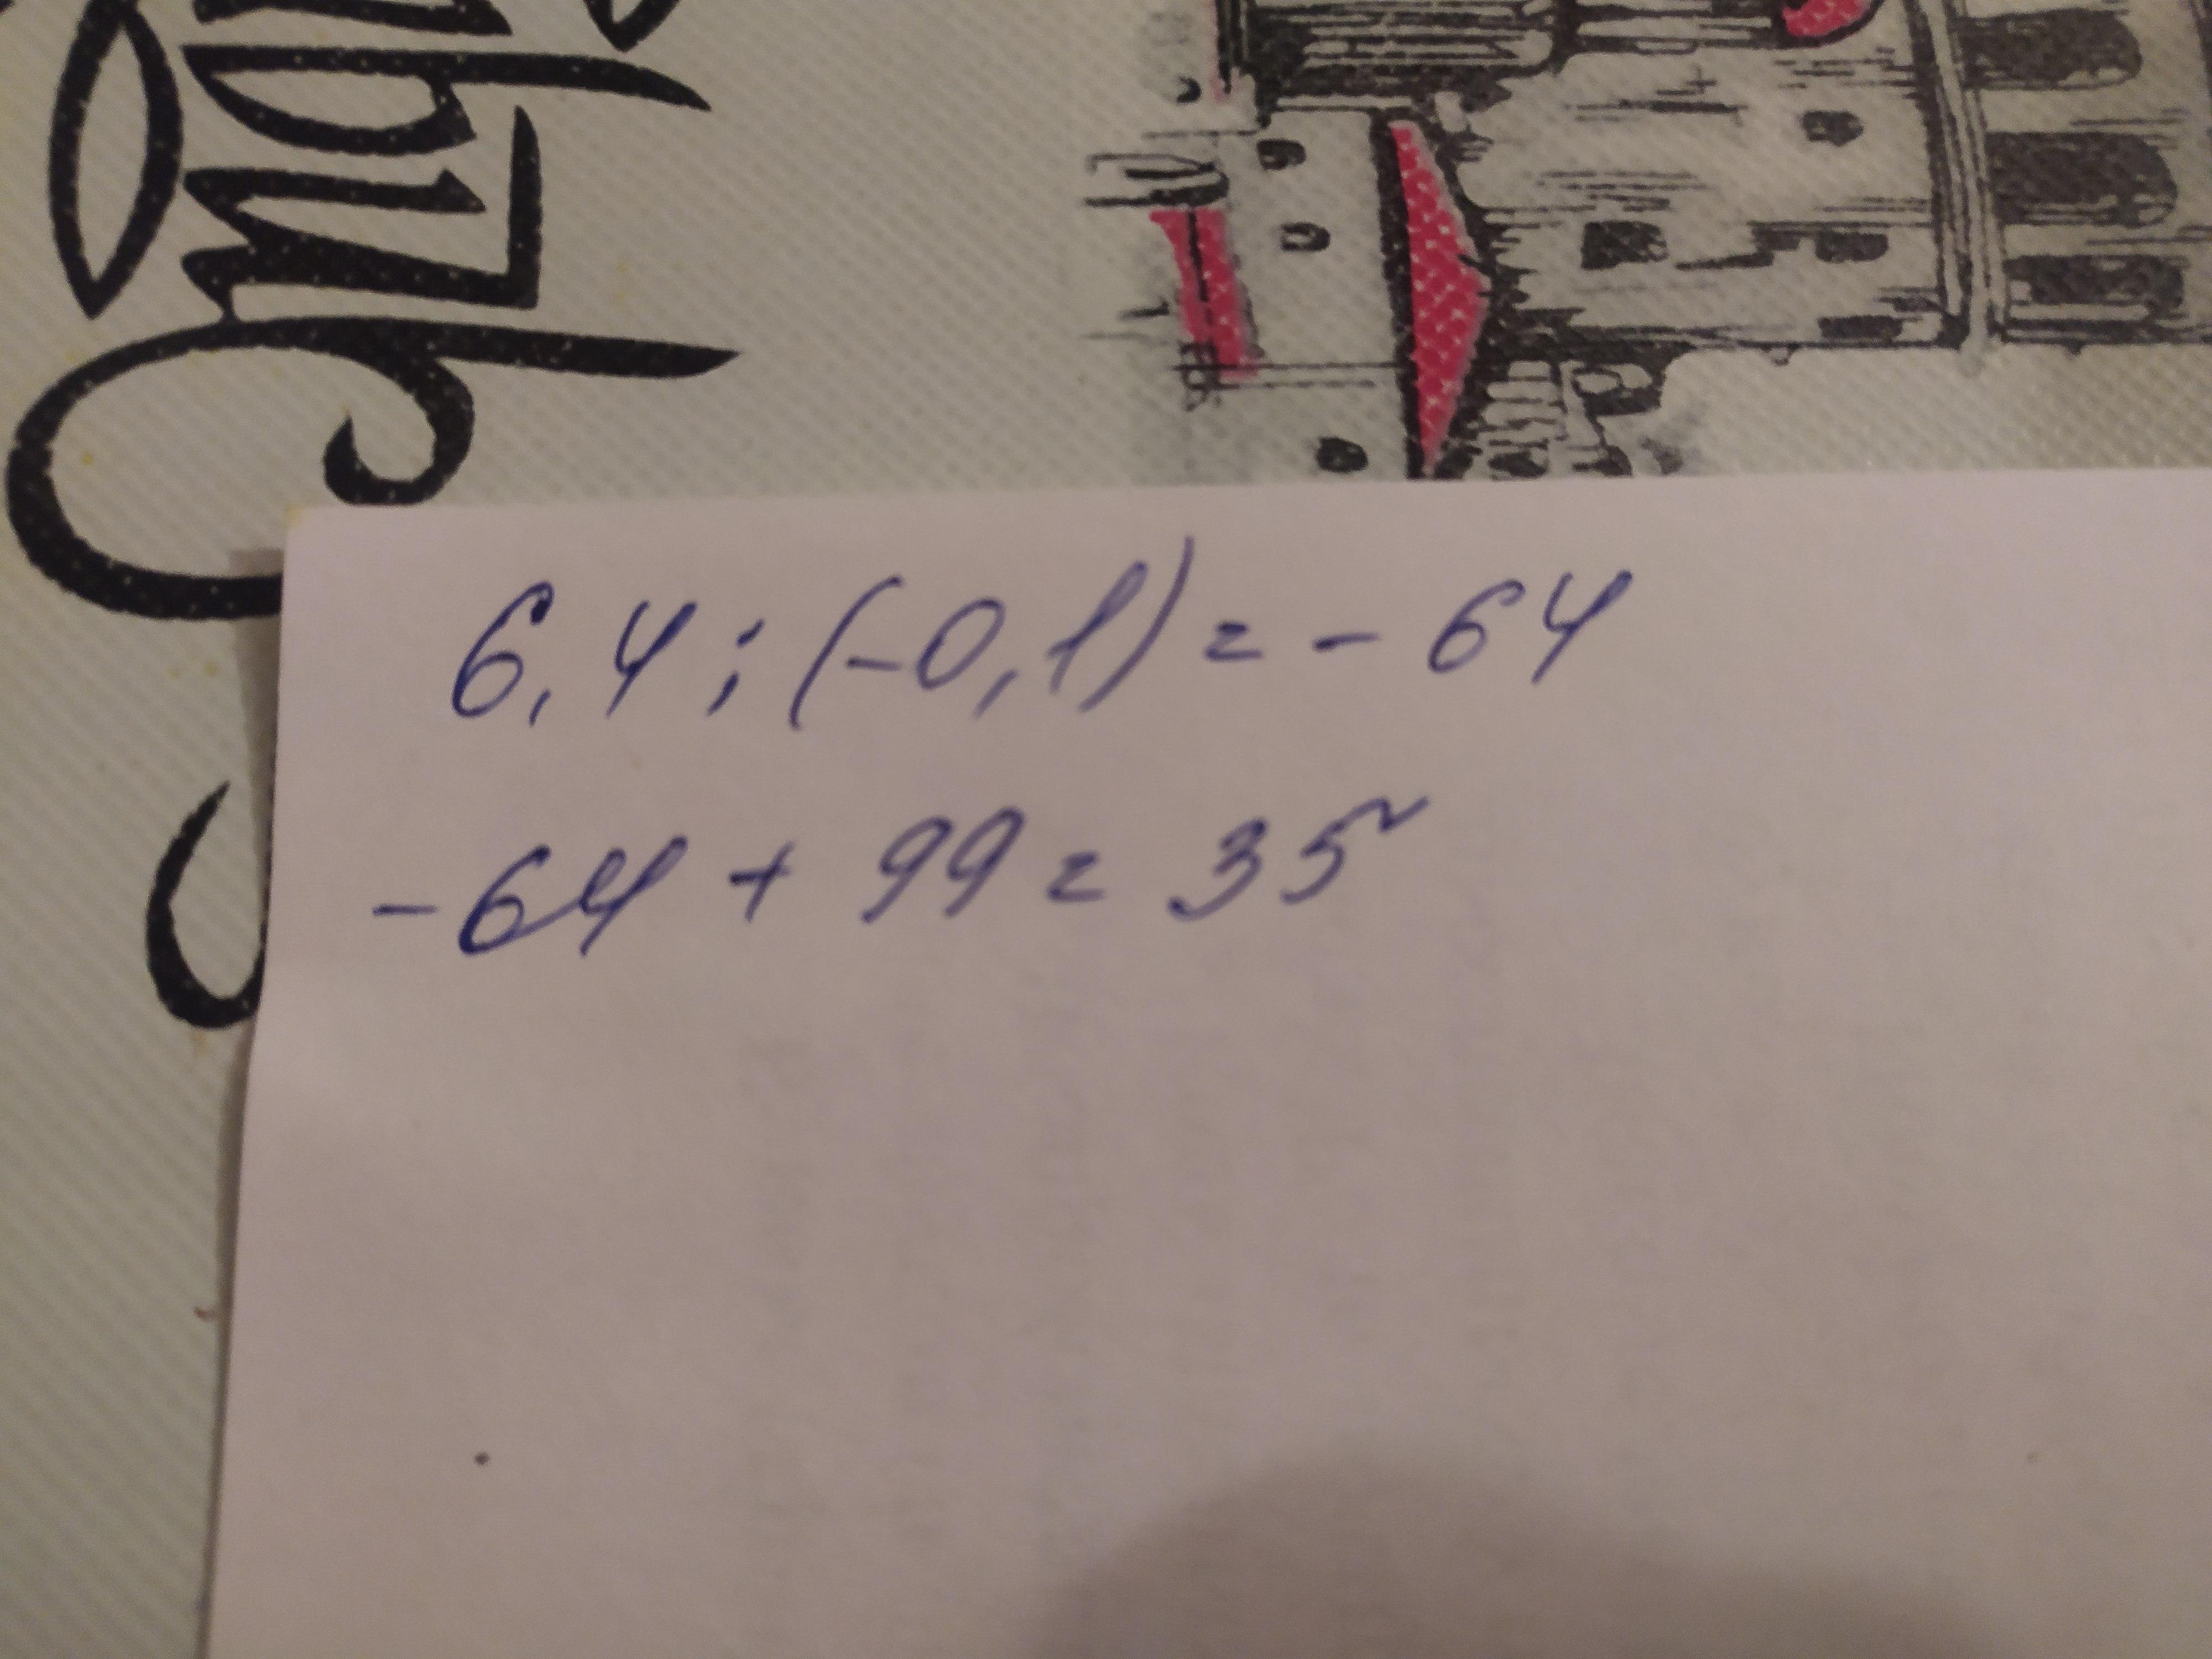 6,4 : (-0,1) = - 64
-64 + 99 = 35